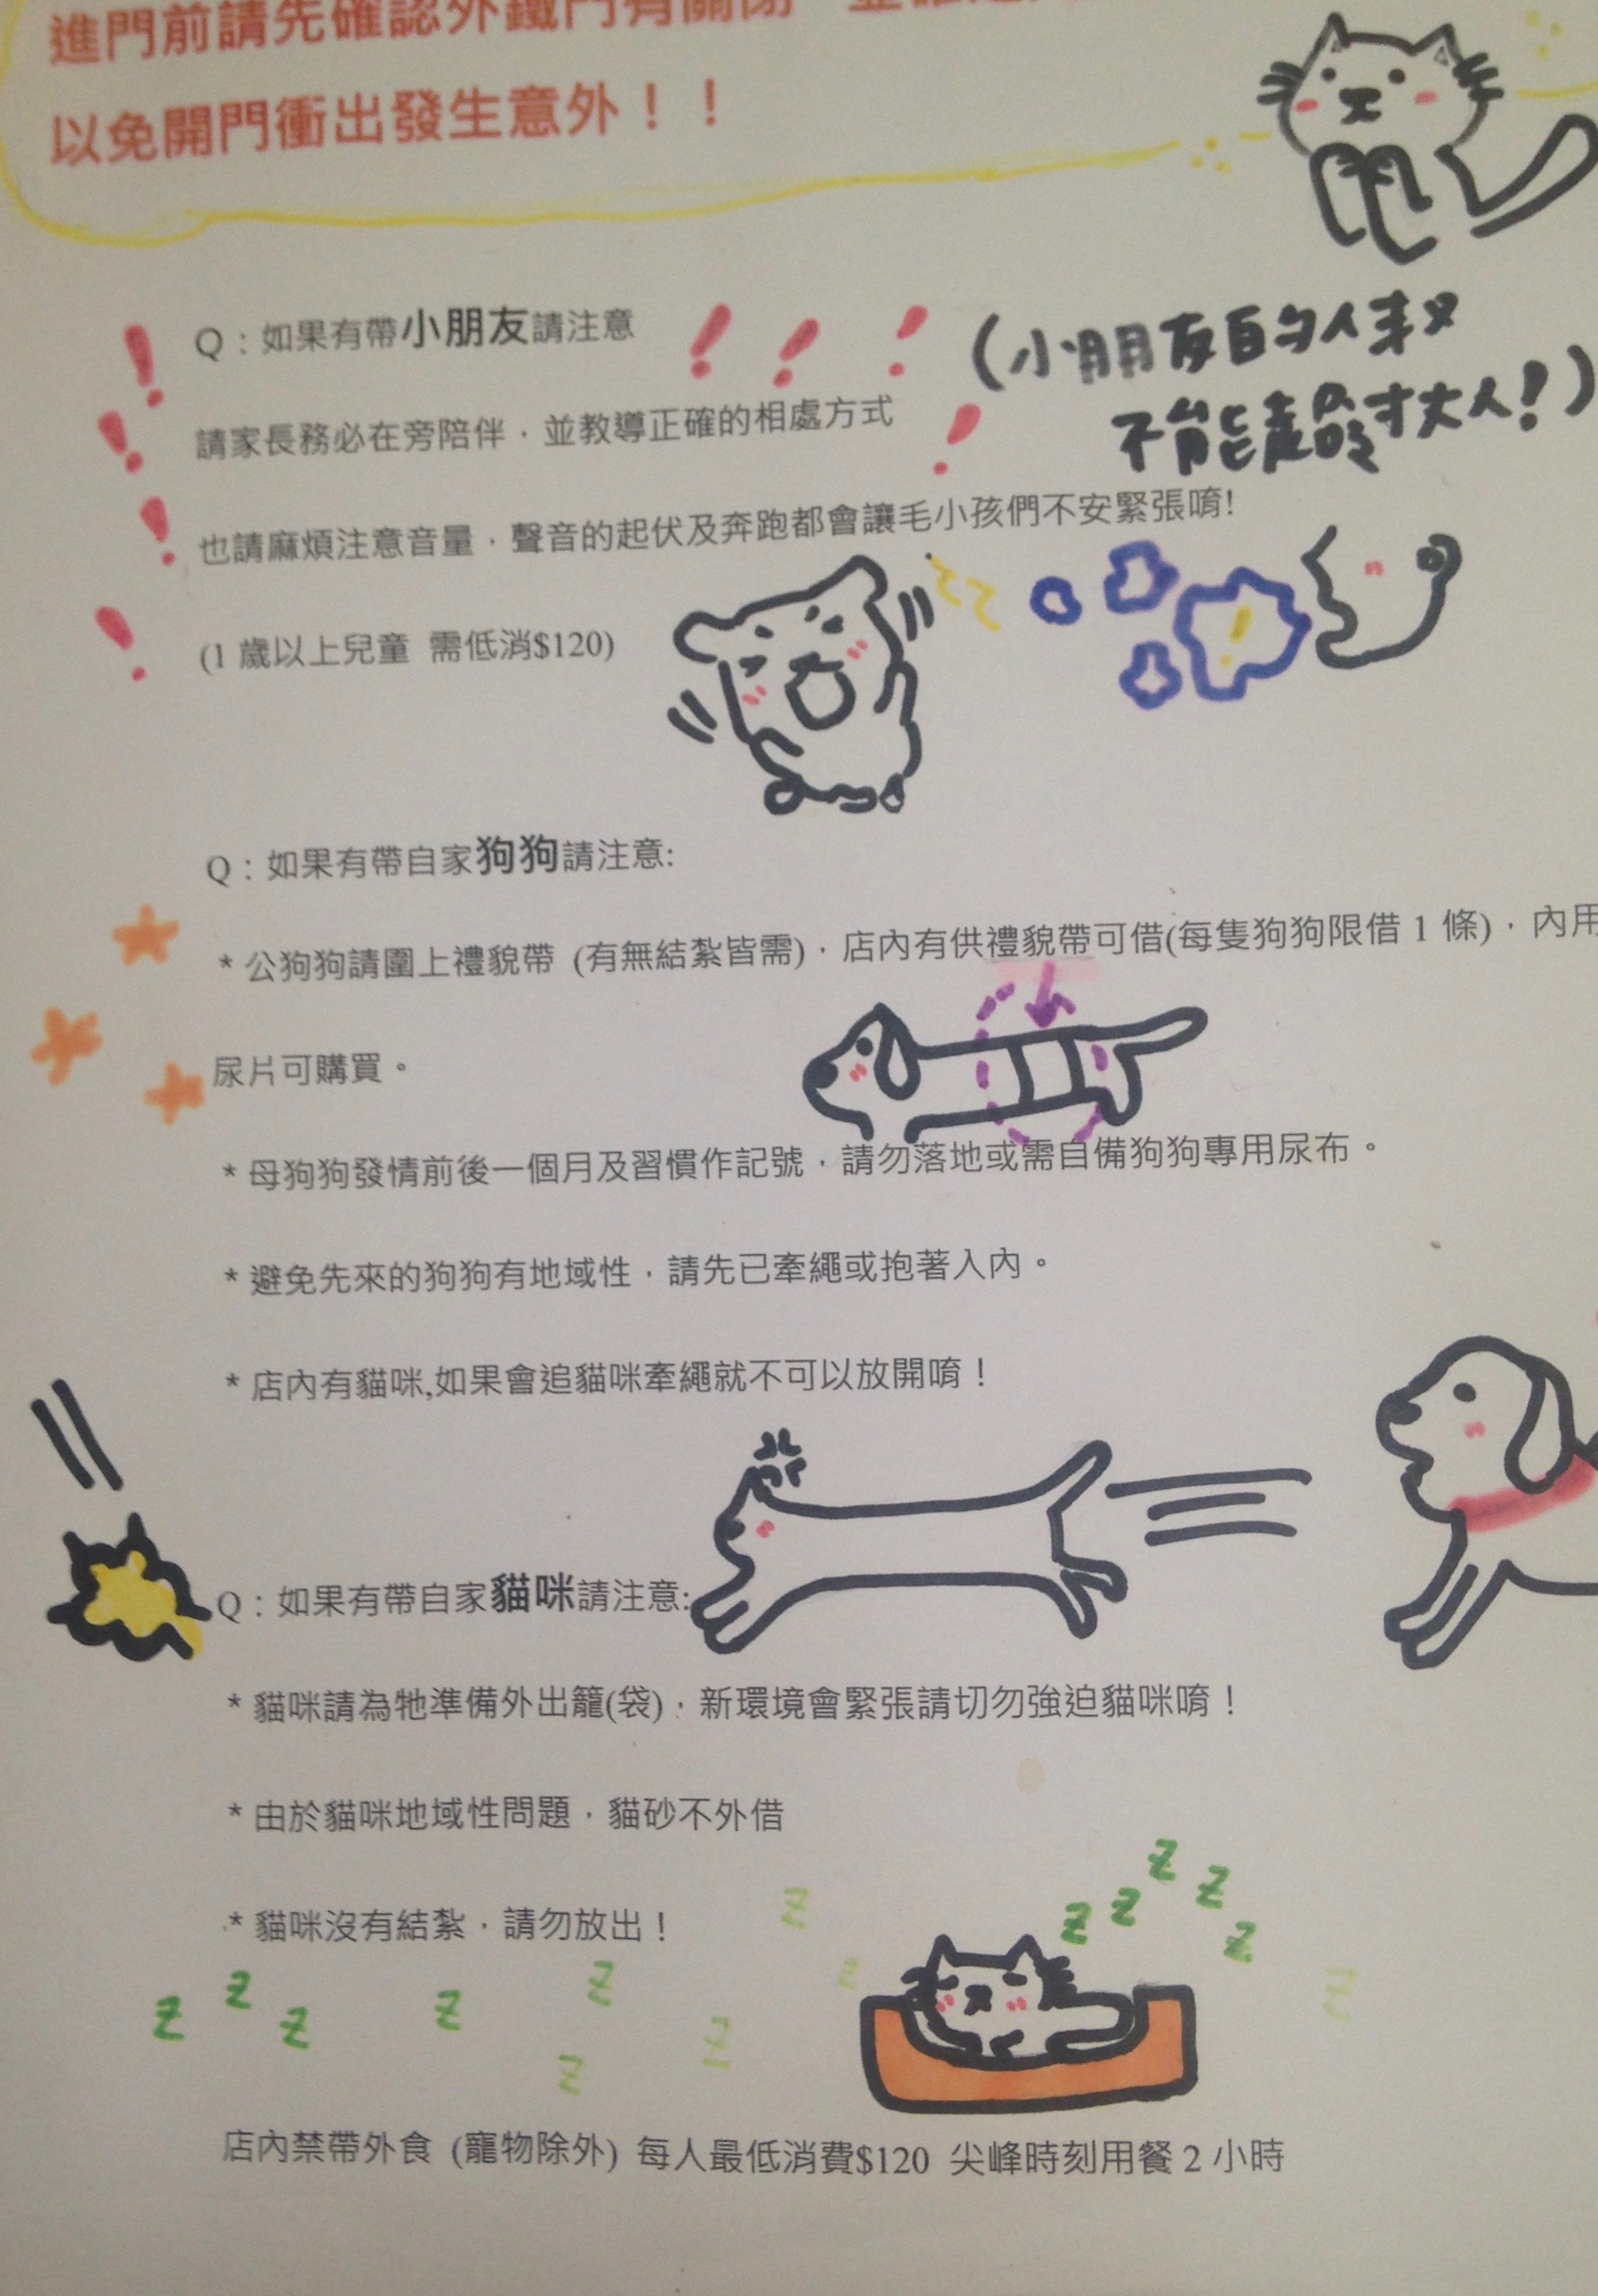 進門前請先確認外鐵門有關閉
以免開門衝出發生意外！！
Q：如果有帶小朋友請注意
(小朋友的人数
不能超過大人!)
請家長務必在旁陪伴，並教導正確的相處方式
也請麻煩注意音量，聲音的起伏及奔跑都會讓毛小孩們不安緊張唷!
(1 歲以上兒童 需低消$120)
Q：如果有帶自家狗狗請注意:
* 公狗狗請圍上禮貌帶 (有無結紮皆需)，店內有供禮貌帶可借(每隻狗狗限借 1 條)，內用
尿片可購買。
* 母狗狗發情前後一個月及習慣作記號，請勿落地或需自備狗狗專用尿布。
* 避免先來的狗狗有地域性，請先已牽繩或抱著入內。
* 店內有貓咪,如果會追貓咪牽繩就不可以放開唷！
Q：如果有帶自家貓咪請注意:
* 貓咪請為牠準備外出籠(袋)，新環境會緊張請切勿強迫貓咪唷！
* 由於貓咪地域性問題，貓砂不外借
* 貓咪沒有結紮，請勿放出！
z z z z z z z z z z z z z z z
店內禁帶外食 (寵物除外) 每人最低消費$120 尖峰時刻用餐 2 小時